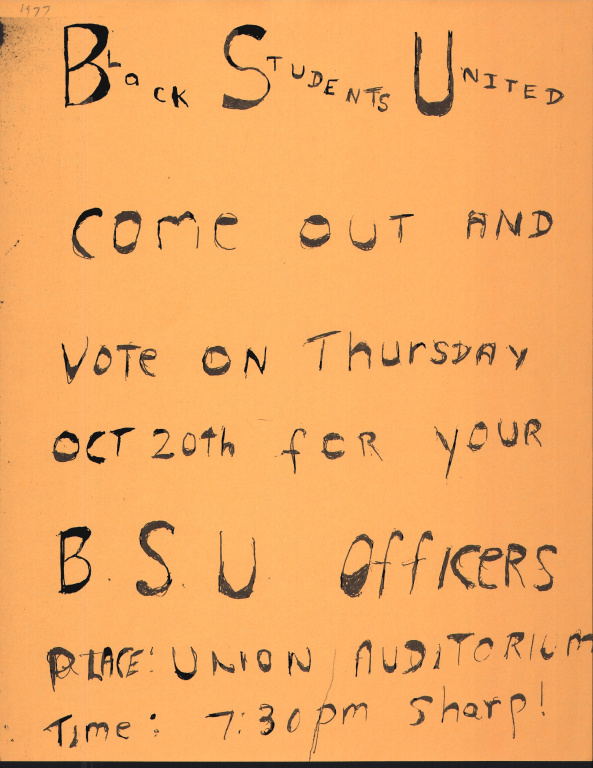 1977
Black Students United
Come out and
Vote on Thursday
Oct 20th for your
B.S.U. Officers
Place: Union Auditorium
Time: 7:30pm Sharp!